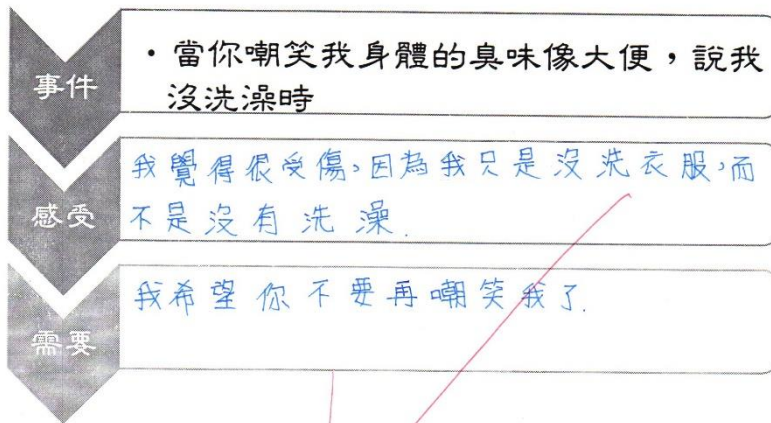 事件
・當你嘲笑我身體的臭味像大便，說我
沒洗澡時
感受
我覺得很受傷，因為我只是沒洗衣服，而
不是沒有洗澡.
需要
我希望你不要再嘲笑我了.